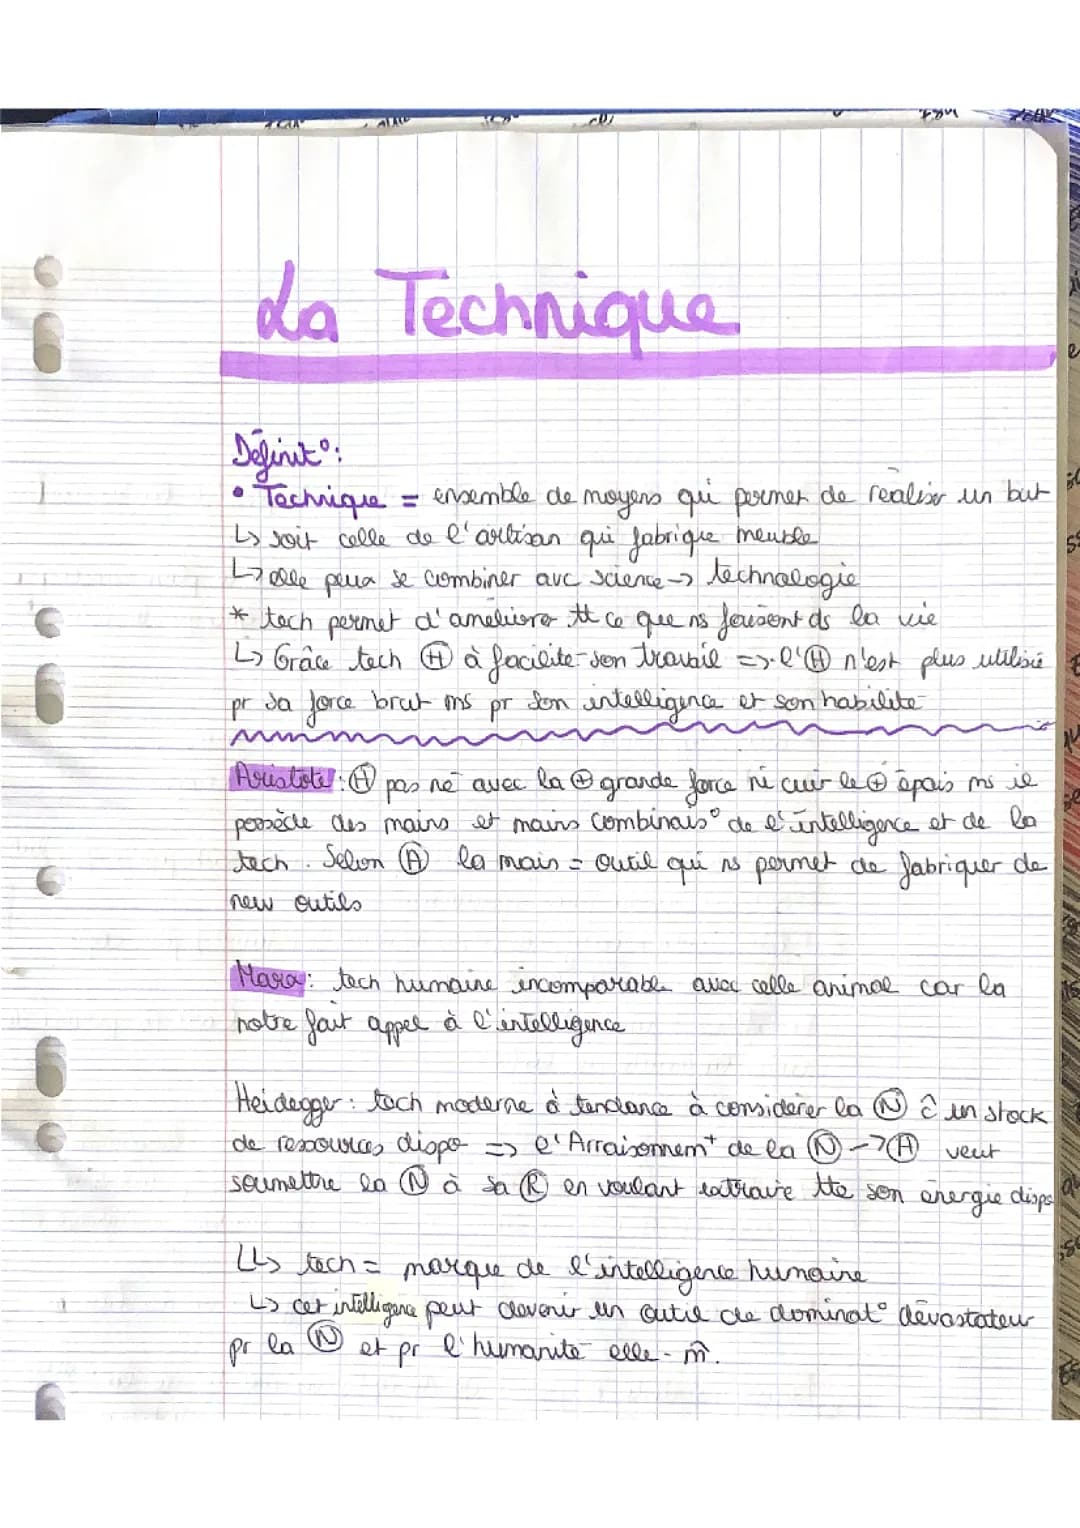 La Technique
Définit°:
• Technique = ensemble de moyens qui permet de réaliser un but
↳ soit celle de l'artisan qui fabrique meuble
↳ elle peux se combiner avc science → technologie
* tech permet d'améliorer tt ce que ns faisont ds la vie
↳ Grâce tech Ⓗ à facilité son travail => l'Ⓗ n'est plus utilisé
pr sa force brut ms pr son intelligence et son habilité
Aristote : Ⓗ pas né avec la ⊕ grande force ni cuir le ⊕ épais ms il
possède des mains et mains combinais° de l'intelligence et de la
tech. Selon Ⓐ la main = outil qui ns permet de fabriquer de
new outils
Marx : tech humaine incomparable avec celle animal car la
notre fait appel à l'intelligence
Heidegger : tech moderne à tendance à considérer la Ⓝ ĉ un stock
de ressources dispo => l'Arraisonnem⁺ de la Ⓝ → Ⓗ veut
soumettre la Ⓝ à sa Ⓡ en voulant extraire tte son énergie dispo
↳ tech = marque de l'intelligence humaine
↳ cet intelligence peut devenir un outil de dominat° dévastateur
pr la Ⓝ et pr l'humanité elle-m̂.